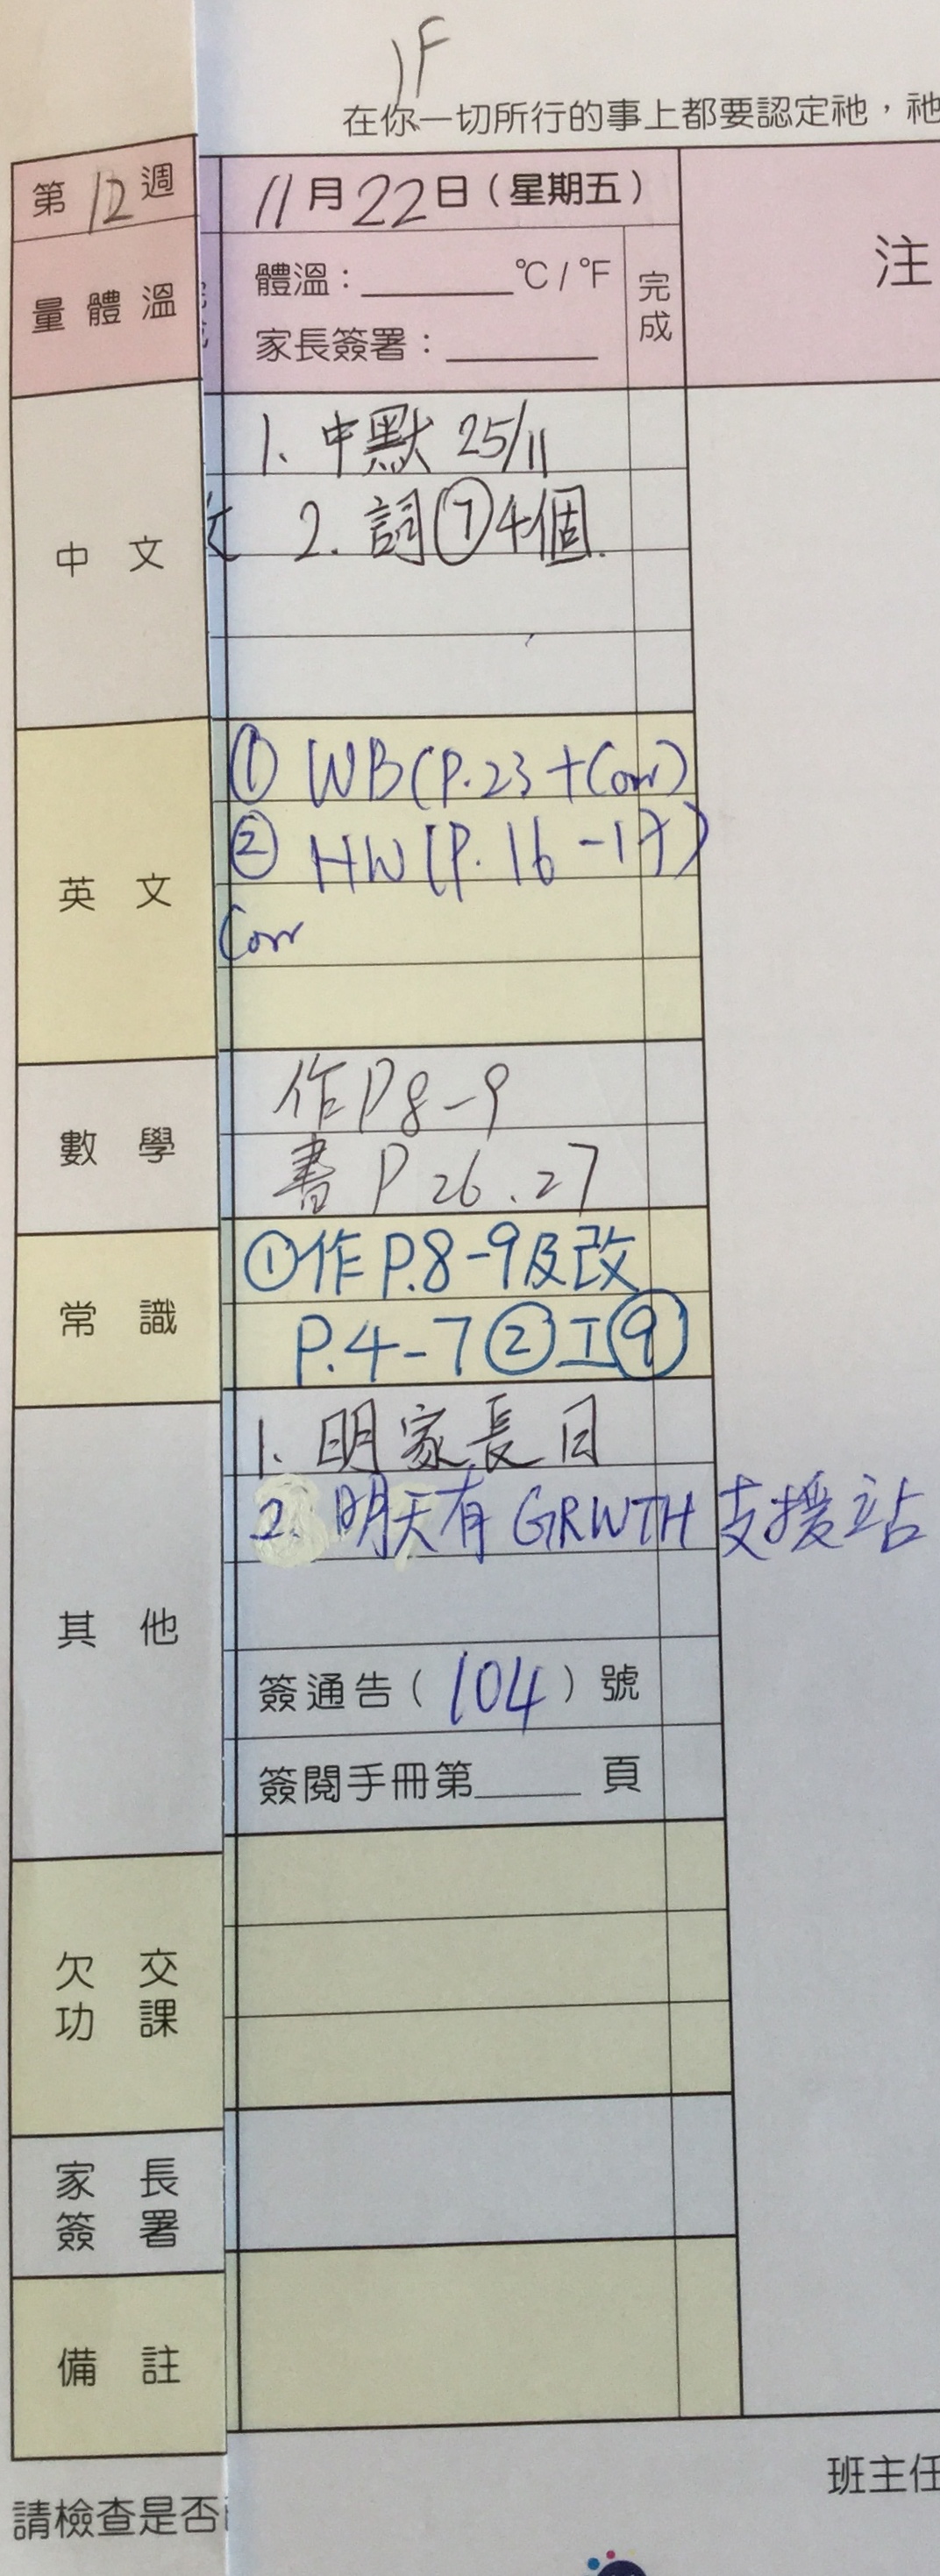 1F
在你一切所行的事上都要認定祂，祂
第12週
11月22日（星期五）
注
量體溫
體溫：______°C/°F
家長簽署：______
完成
中文
1. 中默 25/11
2. 詞⑦4個.
英文
① WB(P.23+Corr)
② HW(P.16-17)
Corr
數學
作P8-9
書P26.27
常識
①作P.8-9及改
P.4-7②工⑨
其他
1. 明家長日
2. 明天有 GRWTH 支援站
簽通告（104）號
簽閱手冊第____頁
欠交
功課
家長
簽署
備註
班主任
請檢查是否